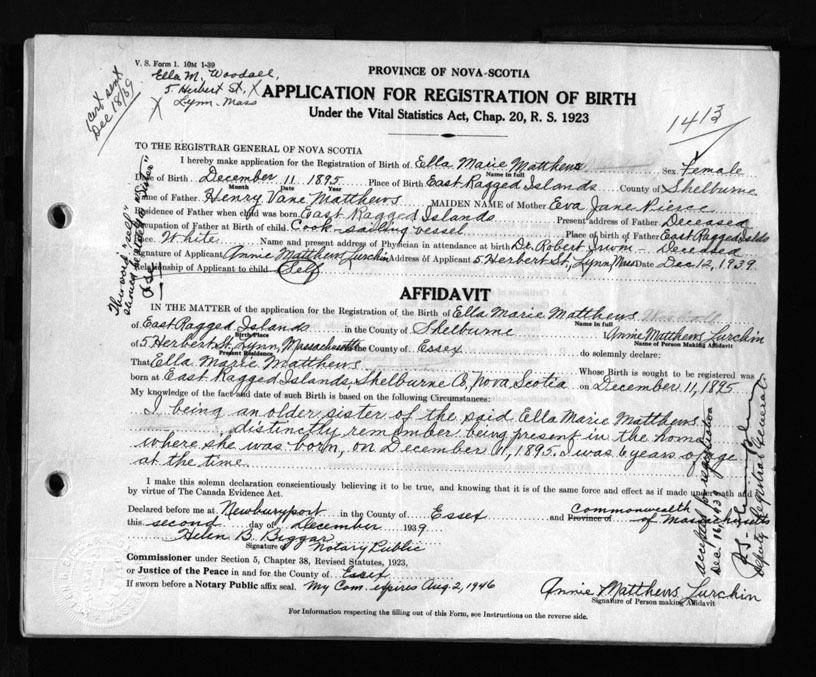 V. S. Form 1. 10M 1-39
Ella M. Woodall,
5 Herbert St, X
X Lynn. Mass
1 cert sent
Dec 18/39
PROVINCE OF NOVA-SCOTIA
APPLICATION FOR REGISTRATION OF BIRTH
Under the Vital Statistics Act, Chap. 20, R. S. 1923
1413
TO THE REGISTRAR GENERAL OF NOVA SCOTIA
I hereby make application for the Registration of Birth of Ella Marie Matthews Sex Female
Name in full
Date of Birth December 11 1895 Place of Birth East Ragged Islands County of Shelburne
Month Date Year
Name of Father Henry Vane Matthews MAIDEN NAME of Mother Eva Jane Pierce
Residence of Father when child was born East Ragged Islands Present address of Father Deceased
Occupation of Father at Birth of child Cook-sailing vessel Place of birth of Father East Ragged Islds
Race White Name and present address of Physician in attendance at birth Dr. Robert - Deceased
Signature of Applicant Annie Matthews Lurchin Address of Applicant 5 Herbert St., Lynn, Mass Date Dec. 12, 1939.
Relationship of Applicant to child Self
The word "self"
should be "Sister"
AFFIDAVIT
IN THE MATTER of the application for the Registration of the Birth of Ella Marie Matthews
Name in full
of East Ragged Islands in the County of Shelburne Annie Matthews Lurchin
Birth Place Name of Person Making Affidavit
of 5 Herbert St. Lynn, Massachusetts in the County of Essex do solemnly declare:
Present Residence
That Ella Marie Matthews Whose Birth is sought to be registered was
born at East Ragged Islands, Shelburne Co., Nova Scotia on December 11, 1895
My knowledge of the fact and date of such Birth is Based on the following Circumstances:
I being an older sister of the said Ella Marie Matthews
, distinctly remember being present in the home
where she was born, on December 11, 1895. I was 6 years of age
at the time.
I make this solemn declaration conscientiously believing it to be true, and knowing that it is of the same force and effect as if made under oath and
by virtue of The Canada Evidence Act.
Declared before me at Newburyport in the County of Essex and Province of Commonwealth of Massachusetts
this second day of December 1939
Helen B. Biggar
Signature of Notary Public
Commissioner under Section 5, Chapter 38, Revised Statutes, 1923,
or Justice of the Peace in and for the County of Essex
If sworn before a Notary Public affix seal. My Com. expires Aug. 2, 1946
Annie Matthews Lurchin
Signature of Person making Affidavit
For Information respecting the filling out of this Form, see Instructions on the reverse side.
accepted for registration
Dec 16, 1939
Deputy Registrar General